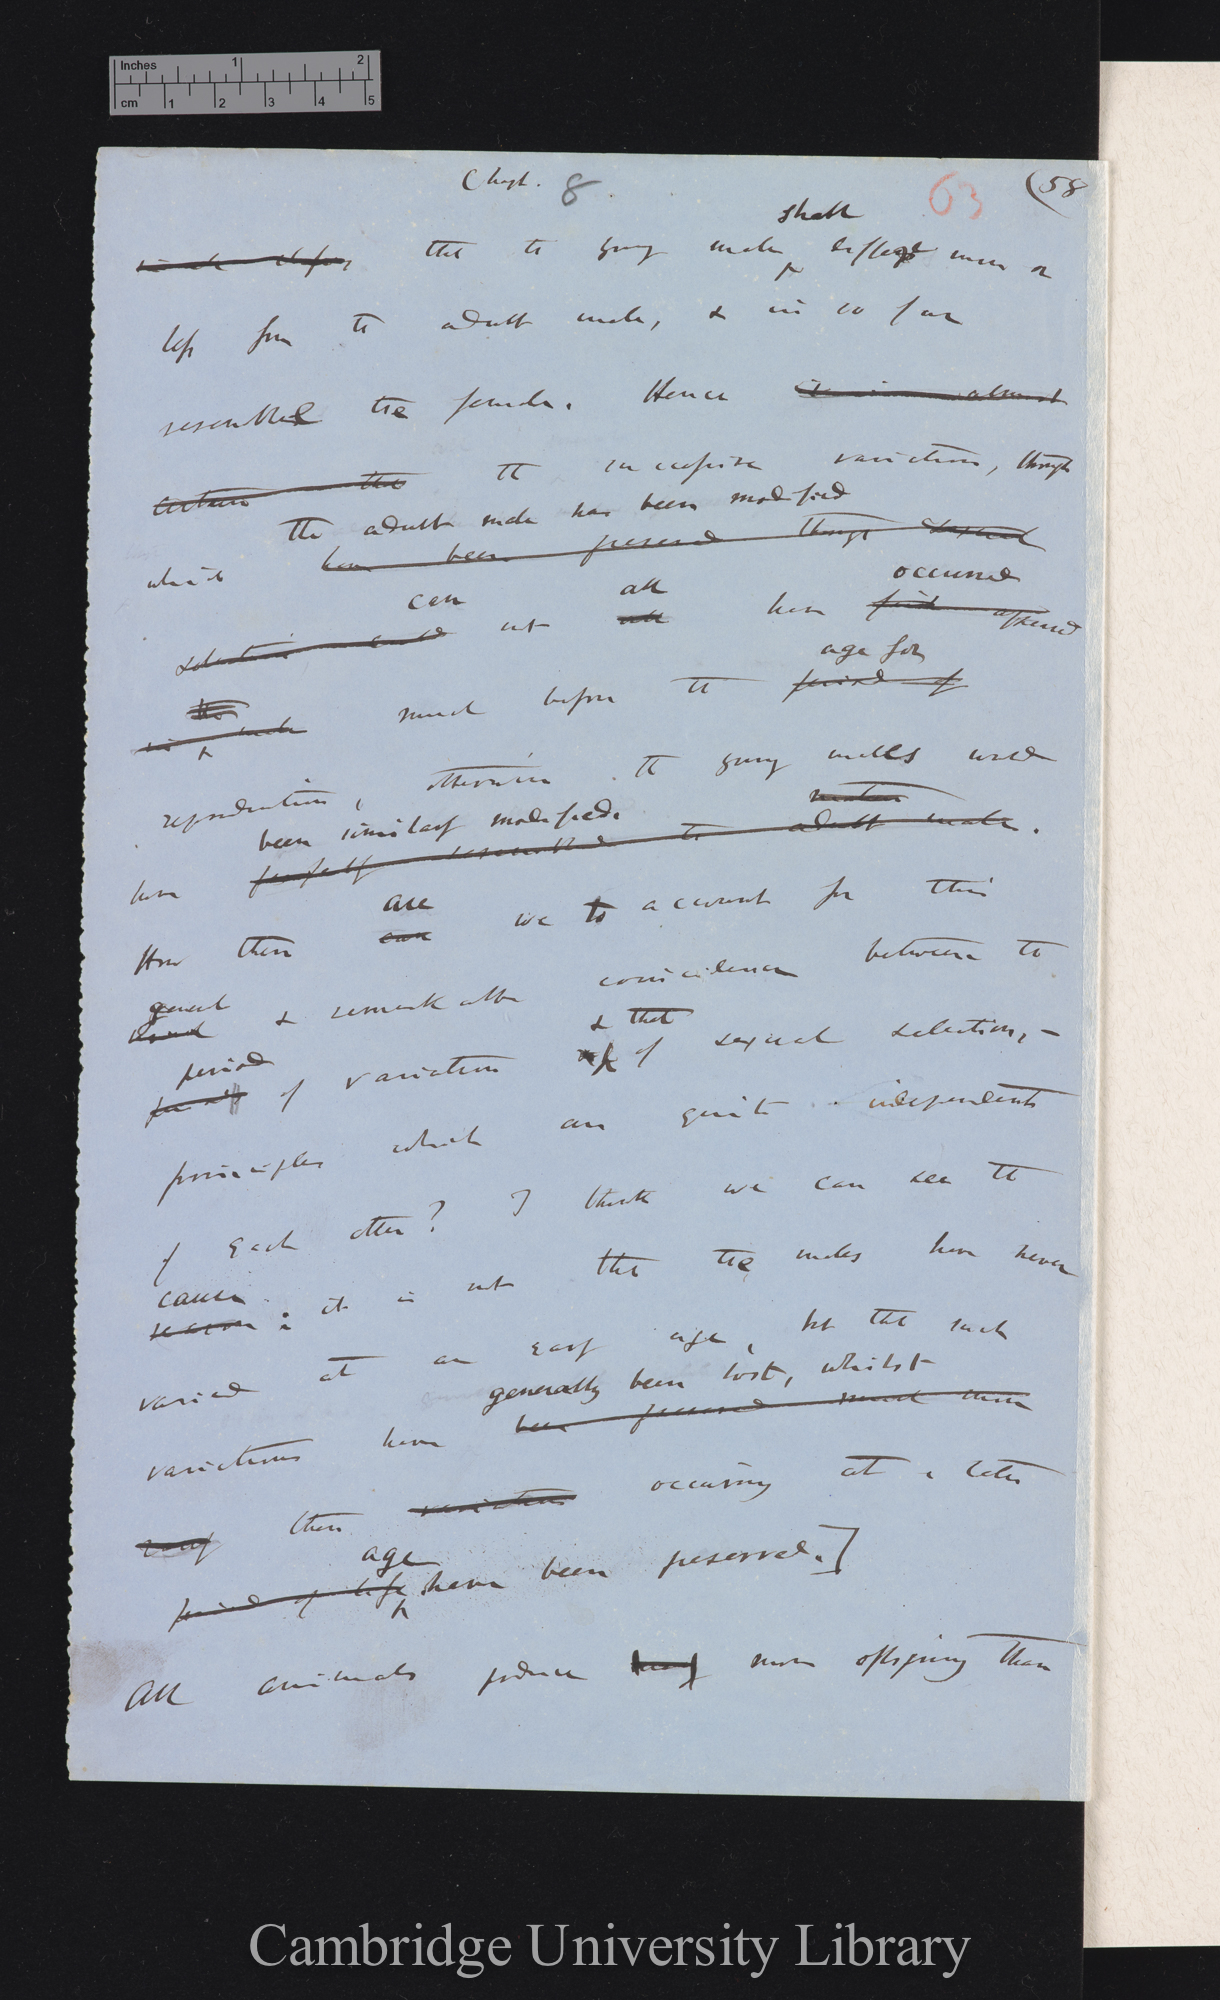 Inches 1 2
cm 1 2 3 4 5
Chapt. 8 63 (58
shall
that the young males differ more or
less from the adult males, & in so far
resemble the females. Hence almost
certain that the successive variations, through
the adult male has been modified
which have been preserved through sexual
can all occurred
selection could not all have appeared
age for
much before the period of
reproduction, otherwise the young males would
been similarly modified.
have perfectly resembled the adult male.
are
How then can we to account for this
general
& remarkable coincidence between the
period & that
of variation & of sexual selection, –
principles which are quite independent
of each other? I think we can see the
cause
reason: it is not that the males have never
varied at an early age, but that such
generally been lost, whilst
variations have been preserved much more
than variations occurring at a later
age
period of life have been preserved.]
All animals produce more offspring than
Cambridge University Library